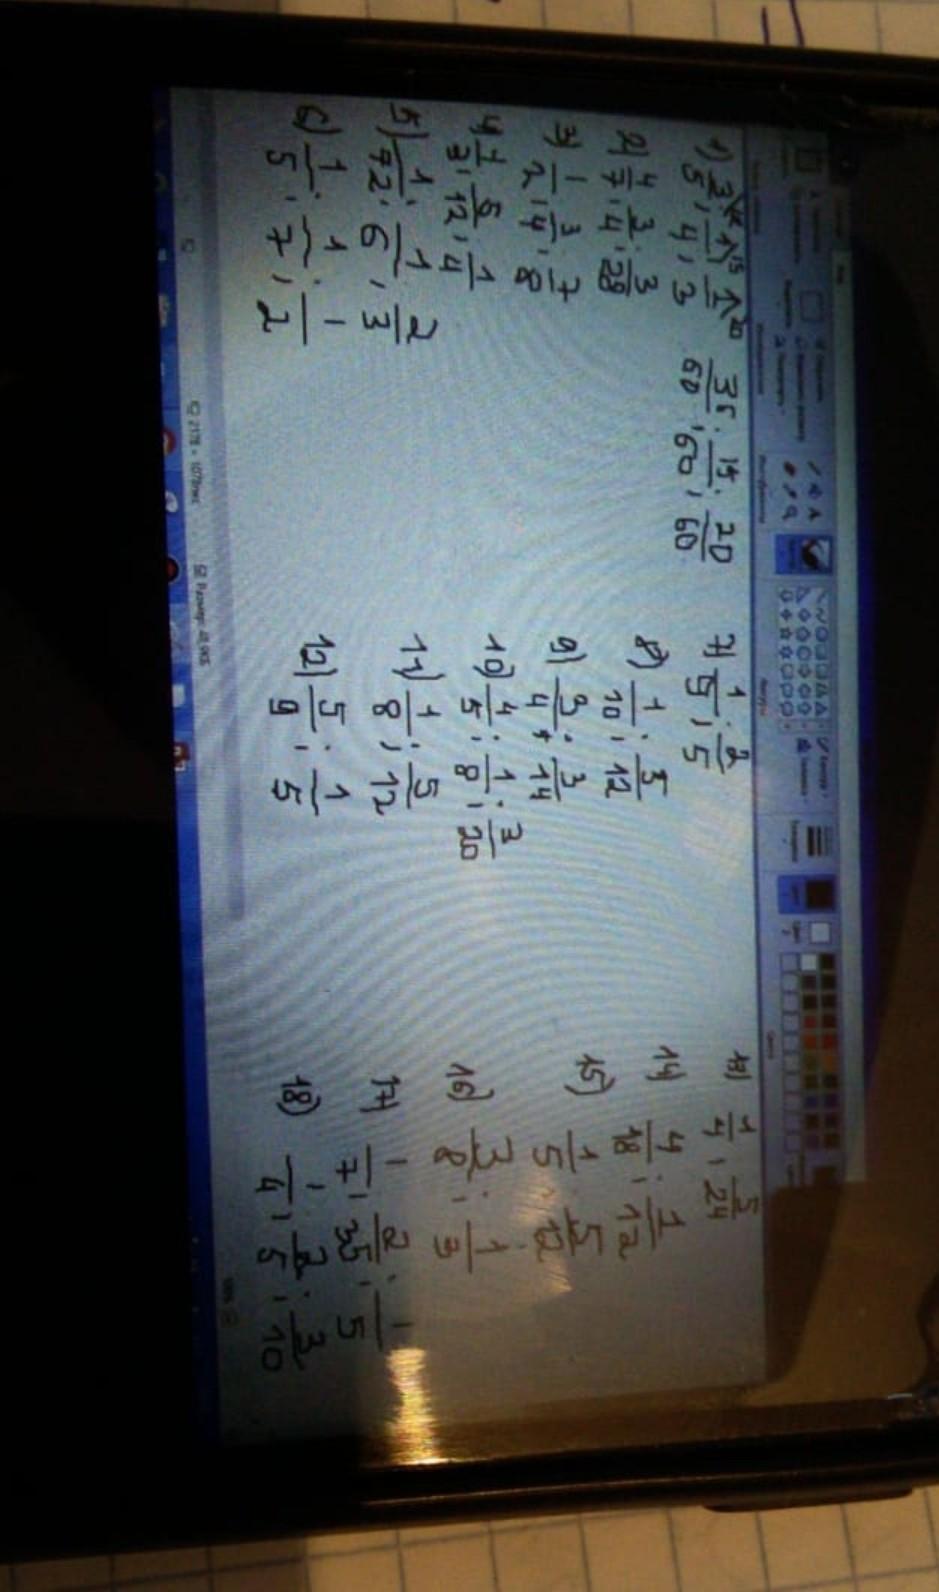 1) 3/5; 1/4; 1/3 36/60; 15/60; 20/60
2) 4/7; 3/4; 3/28
3) 1/2; 3/4; 7/8
4) 1/3; 5/12; 1/4
5) 1/72; 1/6; 2/3
6) 1/5; 1/7; 1/2
7) 1/5; 2/5
8) 1/10; 5/12
9) 3/4; 3/14
10) 4/5; 1/8; 3/20
11) 1/8; 5/12
12) 5/9; 1/5
13) 1/4; 5/24
14) 4/18; 1/12
15) 1/5; 5/12
16) 3/8; 1/3
17) 1/7; 2/35; 1/5
18) 1/4; 2/5; 3/10